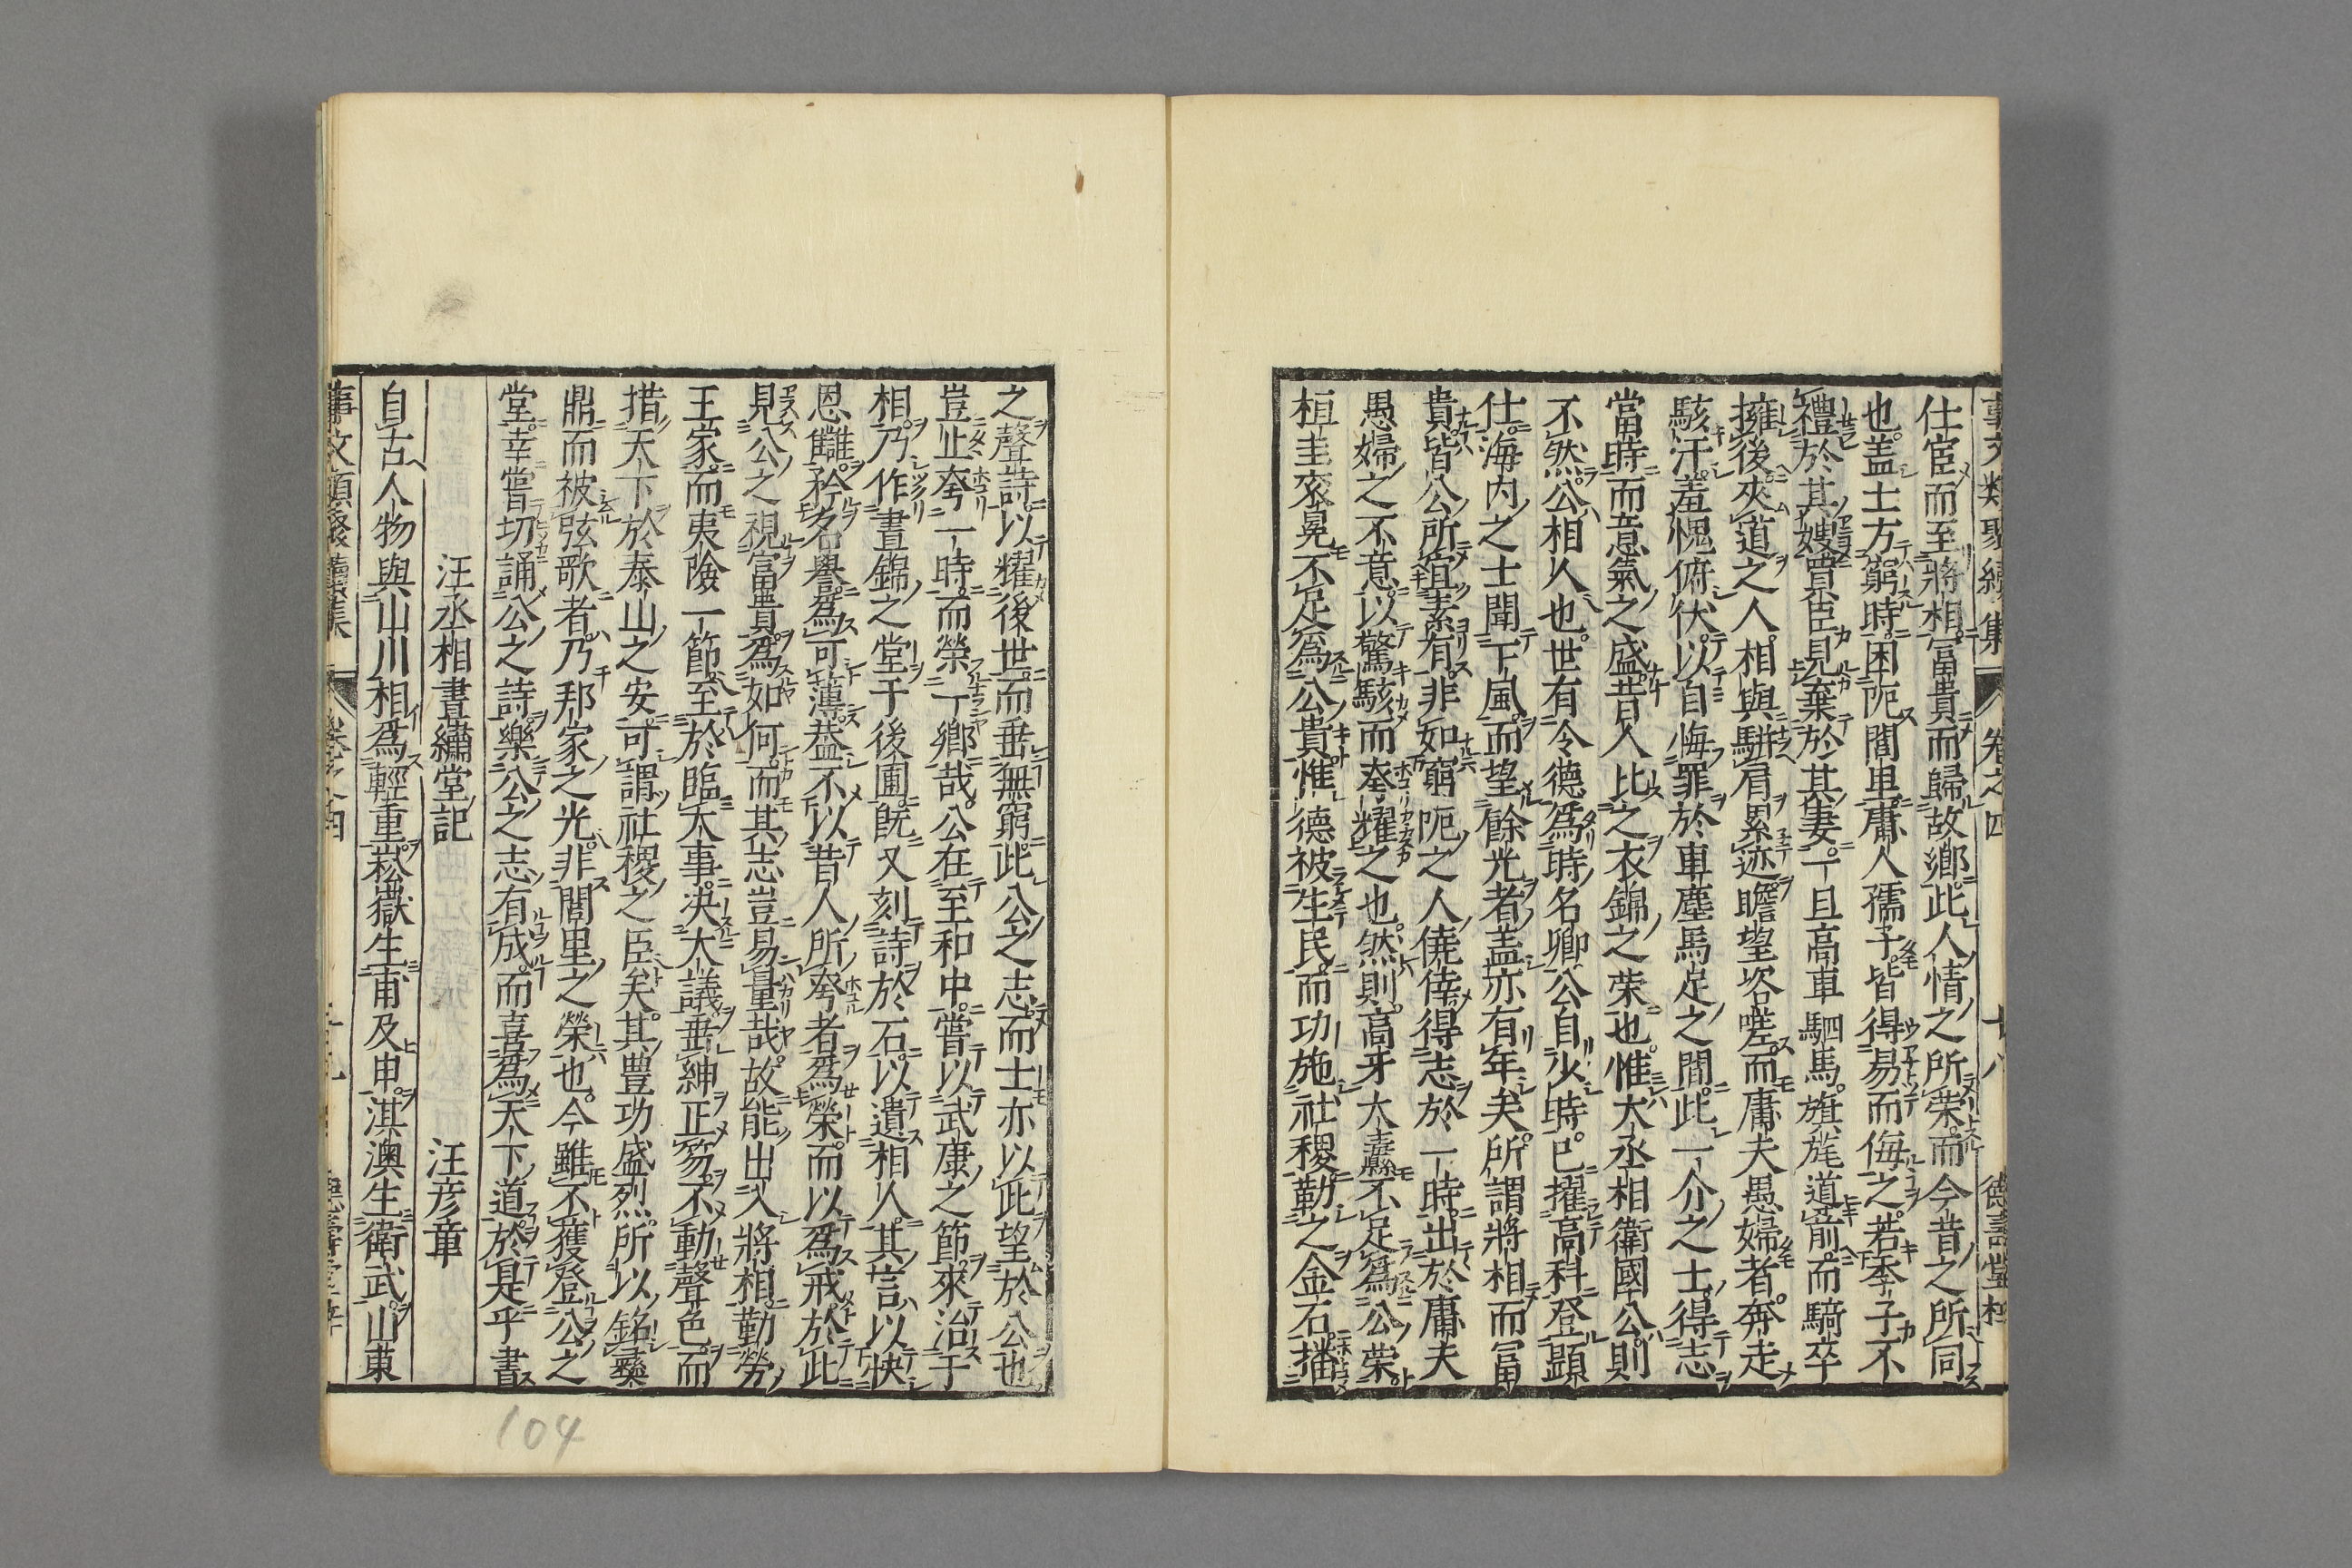 事文類聚續集 卷之四 十八 德壽堂梓
仕宦而至將相冨貴而歸故鄉此人情之所榮而今昔之所同
也盖士方窮時困阨閭里庸人孺子皆得易而侮之若季子不
禮於其嫂買臣見棄於其妻一旦高車駟馬旗旄道前而騎卒
擁後夾道之人相與駢肩累迹瞻望咨嗟而庸夫愚婦者奔走
駭汗羞愧俯伏以自悔罪於車塵馬足之間此一介之士得志
當時而意氣之盛昔人比之衣錦之榮也惟大丞相衛國公則
不然公相人也世有令德爲時名卿公自少時已擢高科登顕
仕海内之士聞下風而望餘光者盖亦有年矣所謂將相而冨
貴皆公所宜素有非如窮阨之人僥倖得志於一時出於庸夫
愚婦之不意以驚駭而夸耀之也然則高牙大纛不足爲公榮
桓圭衮冕不足爲公貴惟德被生民而功施社稷勒之金石播
之聲詩以耀後世而垂無窮此公之志而士亦以此望於公也
豈止夸一時而榮一鄉哉公在至和中嘗以武康之節來治于
相乃作晝錦之堂于後圃既又刻詩於石以遺相人其言以快
恩讎矜名譽爲可薄葢不以昔人所夸者爲榮而以爲戒於此
見公之視富貴爲如何而其志豈易量哉故能出入將相勤勞
王家而夷險一節至於臨大事决大議垂紳正笏不動聲色而
措天下於泰山之安可謂社稷之臣矣其豊功盛烈所以銘彝
鼎而被弦歌者乃邦家之光非閭里之榮也今雖不獲登公之
堂幸嘗切誦公之詩樂公之志有成而喜爲天下道於是乎書
汪丞相晝繡堂記 汪彦章
自古人物與山川相爲輕重崧嶽生甫及申淇澳生衛武山東
事文類聚續集 卷之四
104